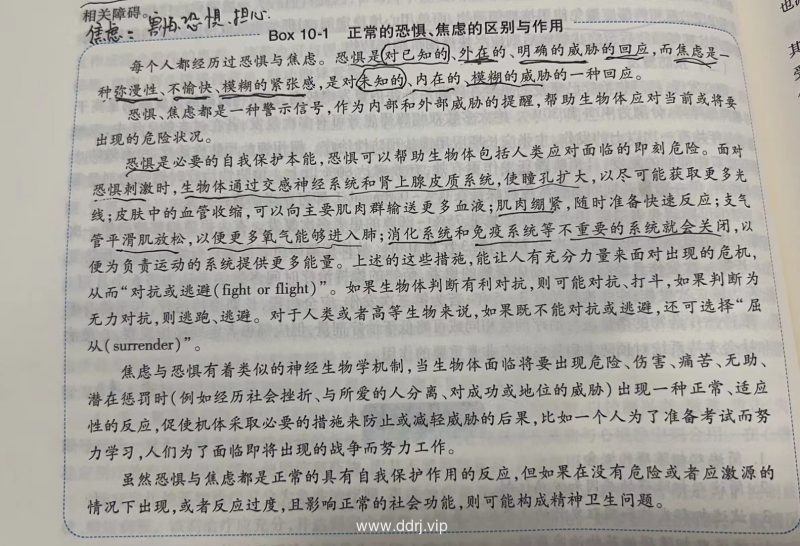 相关障碍。
焦虑：害怕、恐惧、担心.
Box 10-1 正常的恐惧、焦虑的区别与作用
每个人都经历过恐惧与焦虑。恐惧是对已知的、外在的、明确的威胁的回应，而焦虑是一
种弥漫性、不愉快、模糊的紧张感，是对未知的、内在的、模糊的威胁的一种回应。
恐惧、焦虑都是一种警示信号，作为内部和外部威胁的提醒，帮助生物体应对当前或将要
出现的危险状况。
恐惧是必要的自我保护本能，恐惧可以帮助生物体包括人类应对面临的即刻危险。面对
恐惧刺激时，生物体通过交感神经系统和肾上腺皮质系统，使瞳孔扩大，以尽可能获取更多光
线；皮肤中的血管收缩，可以向主要肌肉群输送更多血液；肌肉绷紧，随时准备快速反应；支气
管平滑肌放松，以便更多氧气能够进入肺；消化系统和免疫系统等不重要的系统就会关闭，以
便为负责运动的系统提供更多能量。上述的这些措施，能让人有充分力量来面对出现的危机，
从而“对抗或逃避(fight or flight)”。如果生物体判断有利对抗，则可能对抗、打斗，如果判断为
无力对抗，则逃跑、逃避。对于人类或者高等生物来说，如果既不能对抗或逃避，还可选择“屈
从(surrender)”。
焦虑与恐惧有着类似的神经生物学机制，当生物体面临将要出现危险、伤害、痛苦、无助、
潜在惩罚时(例如经历社会挫折、与所爱的人分离、对成功或地位的威胁)出现一种正常、适应
性的反应，促使机体采取必要的措施来防止或减轻威胁的后果，比如一个人为了准备考试而努
力学习，人们为了面临即将出现的战争而努力工作。
虽然恐惧与焦虑都是正常的具有自我保护作用的反应，但如果在没有危险或者应激源的
情况下出现，或者反应过度，且影响正常的社会功能，则可能构成精神卫生问题。
www.ddrj.vip